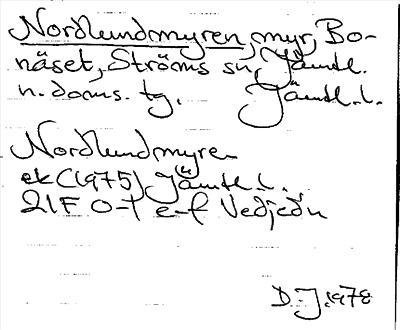 Nordlundmyren, myr, Bo-
näset, Ströms sn, Jämtl.
n. doms. tg. Jämtl. l.
Nordlundmyren
ek (1975) Jämtl. l.
21F 0-1 e-f Vedjeön
D. J. 1978